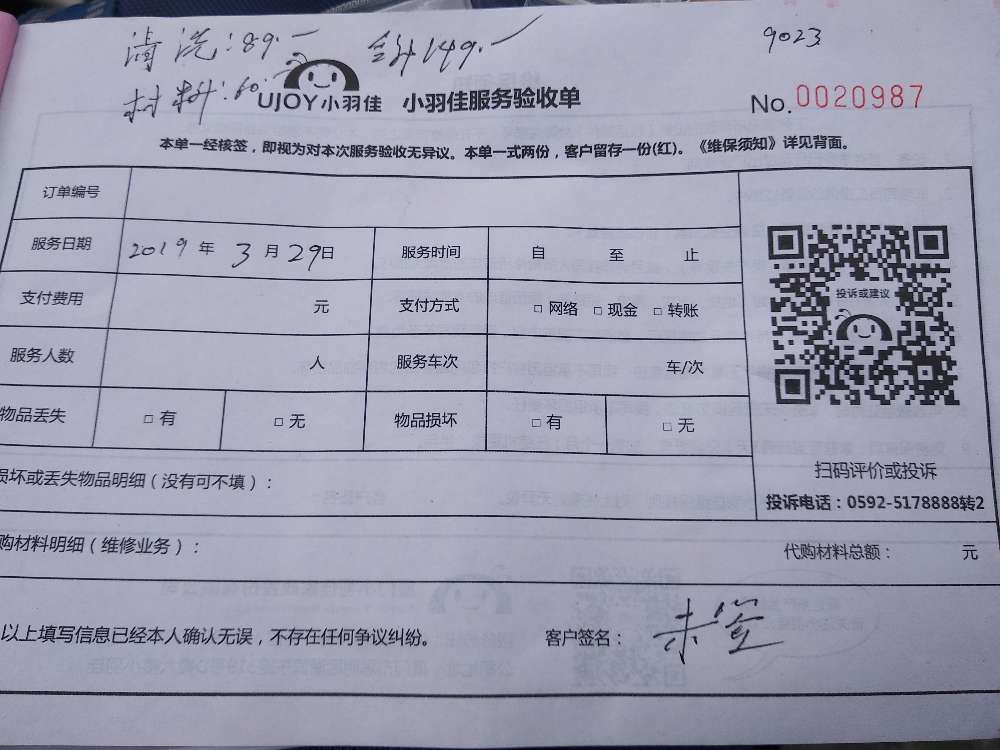 清洗：89.－ 合计149.－ 9023
材料：60.－
UJOY小羽佳 小羽佳服务验收单 No.0020987
本单一经核签，即视为对本次服务验收无异议。本单一式两份，客户留存一份(红)。《维保须知》详见背面。
订单编号
服务日期 2019 年 3 月 29日 服务时间 自 至 止
投诉或建议
支付费用 元 支付方式 □ 网络 □ 现金 □ 转账
服务人数 人 服务车次 车/次
物品丢失 □ 有 □ 无 物品损坏 □ 有 □ 无
损坏或丢失物品明细（没有可不填）：
扫码评价或投诉
投诉电话：0592-5178888转2
购材料明细（维修业务）： 代购材料总额： 元
以上填写信息已经本人确认无误，不存在任何争议纠纷。 客户签名：未签